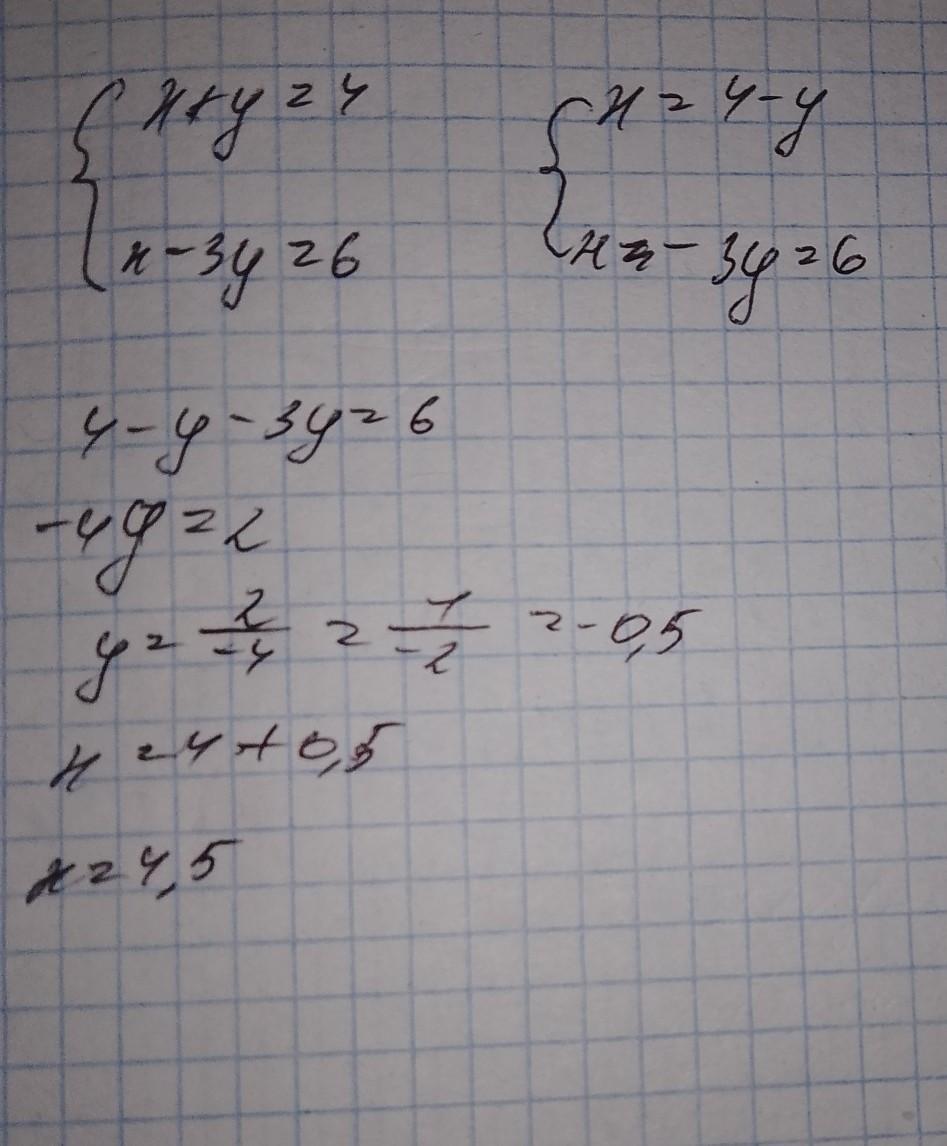 x+y=4
x-3y=6
x=4-y
x=-3y=6
4-y-3y=6
-4y=2
y=2/-4=1/-2=-0,5
x=4+0,5
x=4,5